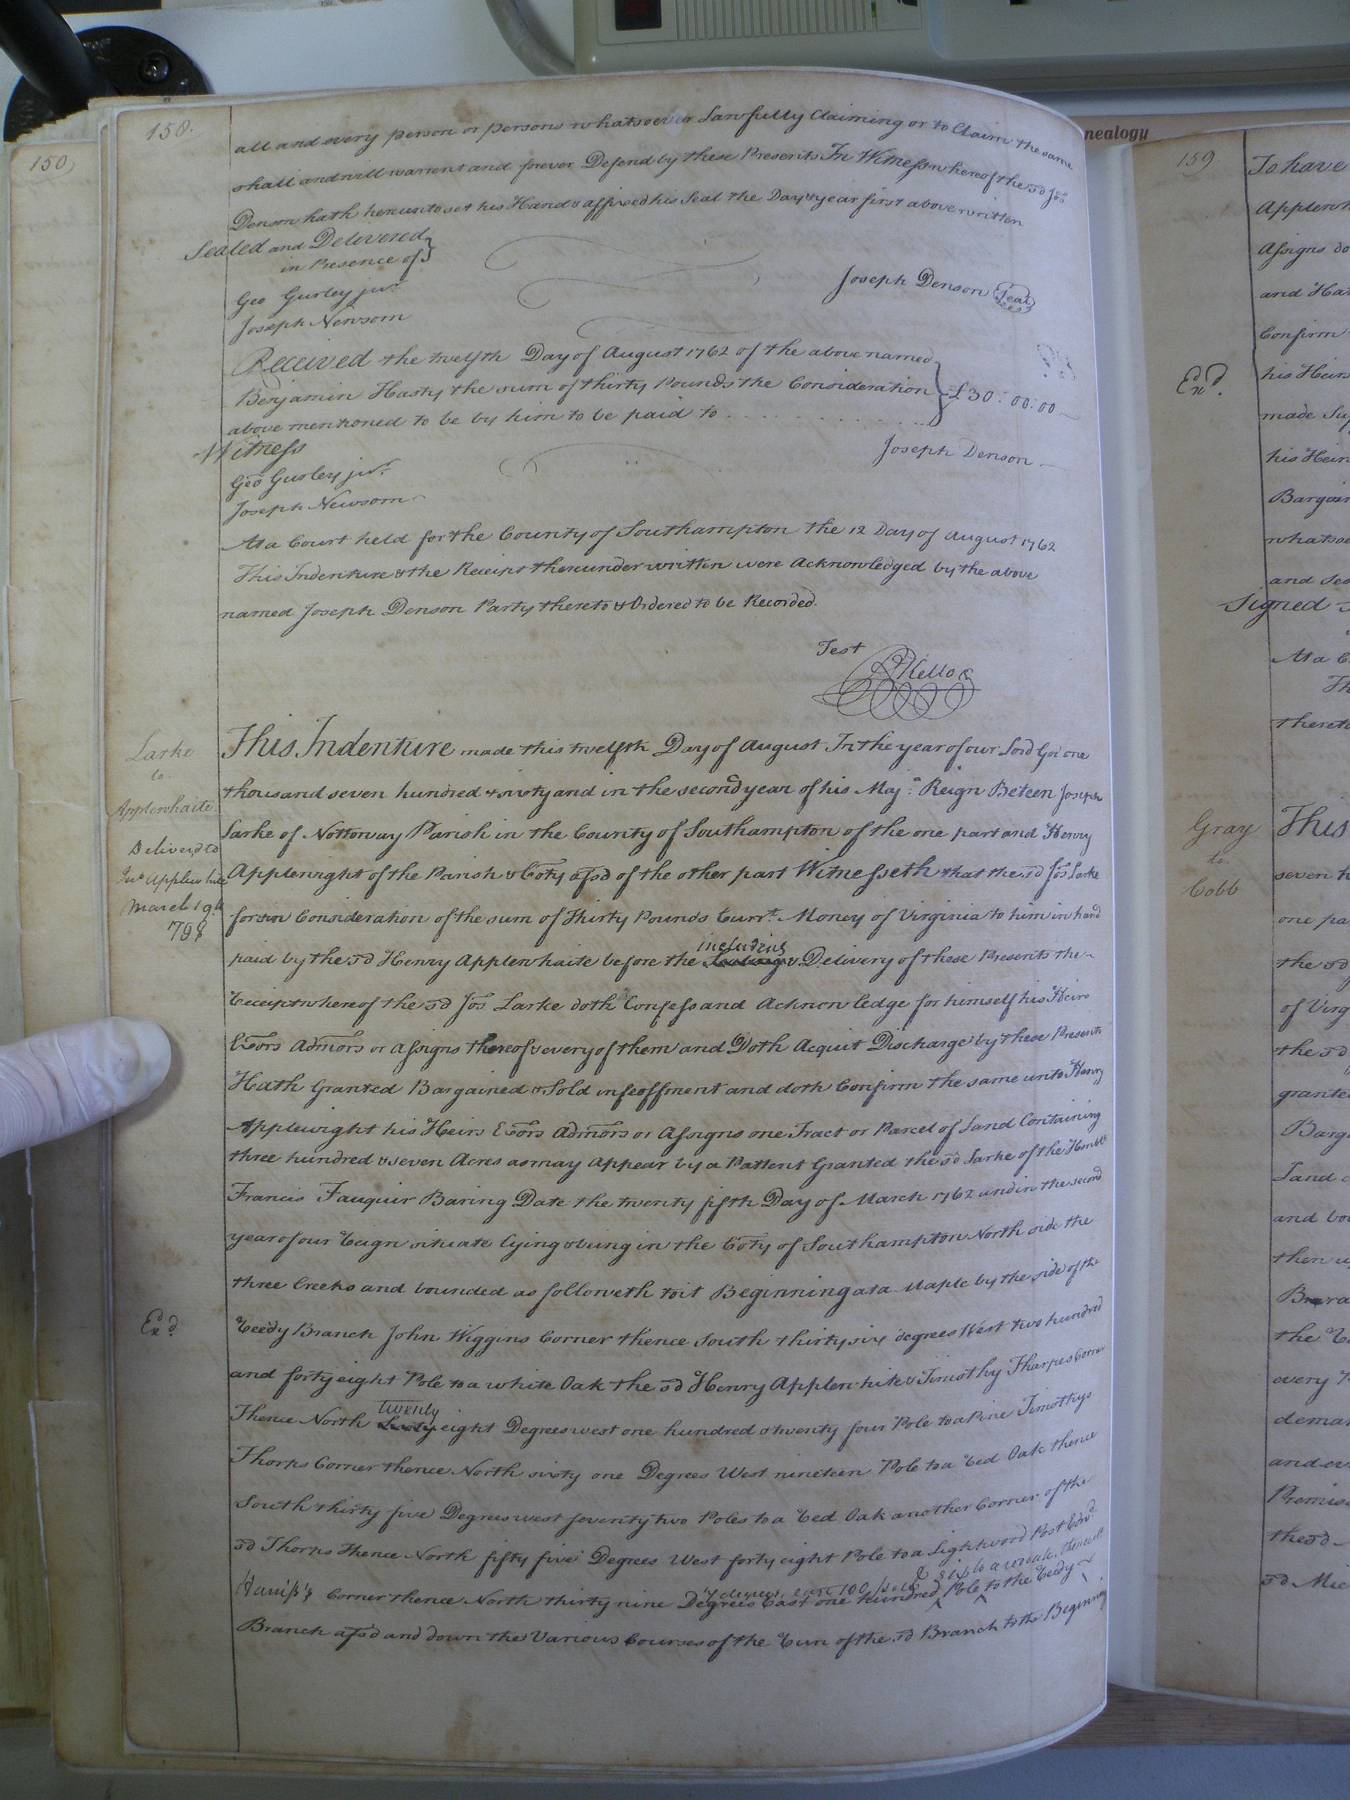 150)
158.
all and every person or persons whatsoever Lawfully Claiming or to Claim the same
shall and will warrent and forever Defend by these Presents In Witness whereof the sd Jos
Denson hath hereunto set his Hand & affixed his Seal the Day & year first above written
Sealed and Delivered
in Presence of
Geo Gurley junr
Joseph Denson Seal
Joseph Newsom
Received the twelfth Day of August 1762 of the above named
Benjamin Hasty the sum of thirty Pounds the Consideration £30:00:00
above mentioned to be by him to be paid to
Witness
Joseph Denson
Geo Gurley junr
Joseph Newsom
At a Court held for the County of Southampton the 12 Day of August 1762
This Indenture & the Receipt thereunder written were Acknowledged by the above
named Joseph Denson Party thereto & Ordered to be Recorded.
Test
R Kello
Larke
to
Applewhaite
Deliver'd to
Jno Applewhite
March 19th
798
This Indenture made this twelfth Day of August In the year of our Lord God one
thousand seven hundred & sixty and in the second year of his Maj Reign Beteen Joseph
Larke of Nottoway Parish in the County of Southampton of the one part and Henry
Applewright of the Parish & Coty afsd of the other part Witnesseth that the sd Jos Larke
for Consideration of the sum of Thirty Pounds Currt Money of Virginia to him in hand
paid by the sd Henry Applewhaite before the including & Delivery of these Presents the
Receipt whereof the sd Jos Larke doth Confess and Acknowledge for himself his Heirs
Exors Admors or Assigns thereof & every of them and Doth Acquit Discharge by these Presents
Hath Granted Bargained & Sold infeoffment and doth Confirm the same unto Henry
Applewight his Heirs Exors Admors or Assigns one Tract or Parcel of Land Containing
three hundred & seven Acres as may Appear by a Pattent Granted the sd Larke of the Honble
Francis Fauquir Baring Date the twenty fifth Day of March 1762 and in the second
year of our Reign situate lying & being in the Coty of Southampton North side the
three Creeks and bounded as followeth toit Beginning at a Maple by the side of the
Exd
Reedy Branch John Wiggins Corner thence South thirty six degrees West two hundred
and forty eight Pole to a white Oak the sd Henry Applewhite & Timothy Tharpes Corner
Thence North twenty eight Degrees west one hundred & twenty four Pole to a Pine Timothys
Thorps Corner thence North sixty one Degrees West nineteen Pole to a Red Oak thence
South thirty five Degrees west seventy two Poles to a Red Oak another Corner of the
sd Thorps Thence North fifty five Degrees West forty eight Pole to a Lightwood Post Edwd
Harris's Corner thence North thirty nine Degrees East one hundred Pole to the Reedy
Branch afsd and down the Various Courses of the Run of the sd Branch to the Beginning
nealogy
159
To have
Applewh
Assigns do
and Ha
Confirm
Exd
his Heirs
made Su
his Heir
Bargain
whatsoe
and Sea
Signed
At a C
Th
thereto
Gray
to
Cobb
This
seven h
one pa
the sd
of Virg
the sd
grante
Barg
Land
and bo
then u
Bra
the R
every
deman
and
Premis
the sd
sd Mic